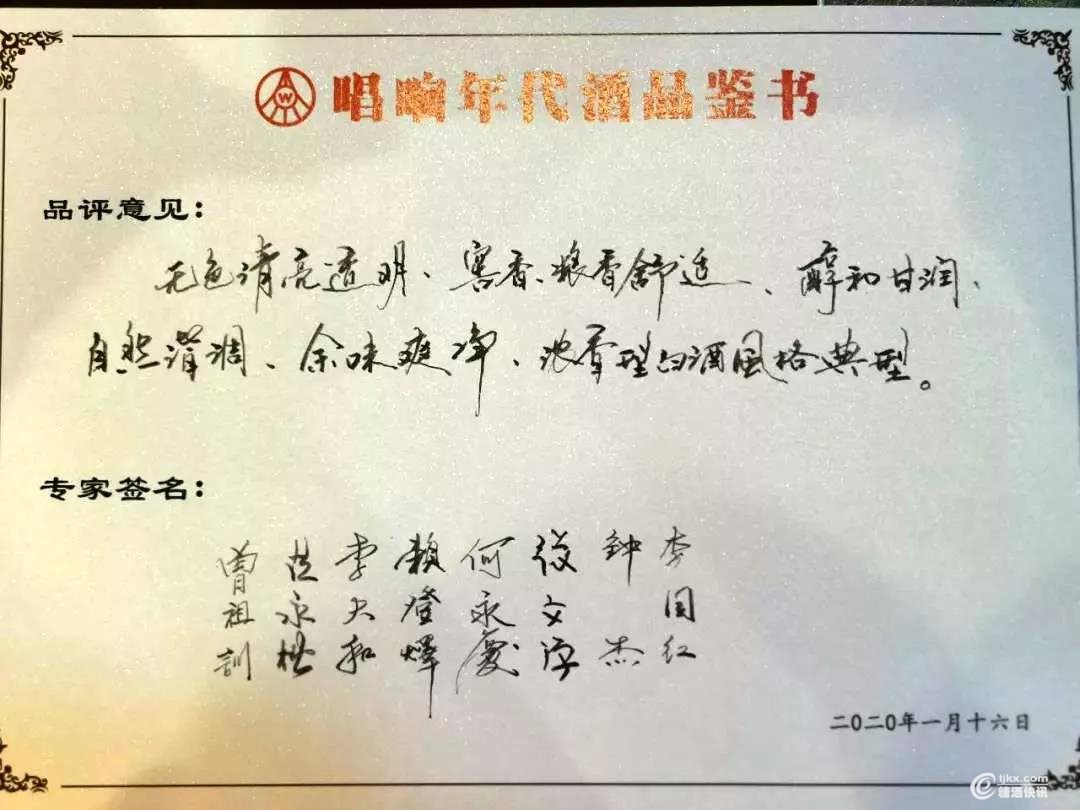 W
唱响年代酒品鉴书
品评意见：
无色清亮透明、窖香、粮香舒适、醇和甘润、
自然谐调、余味爽净、浓香型白酒风格典型。
专家签名：
曾祖訓
永
李大和
赖登燡
何永
张文学
钟杰
李国红
二〇二〇年一月十六日
tjkx.com
糖酒快讯